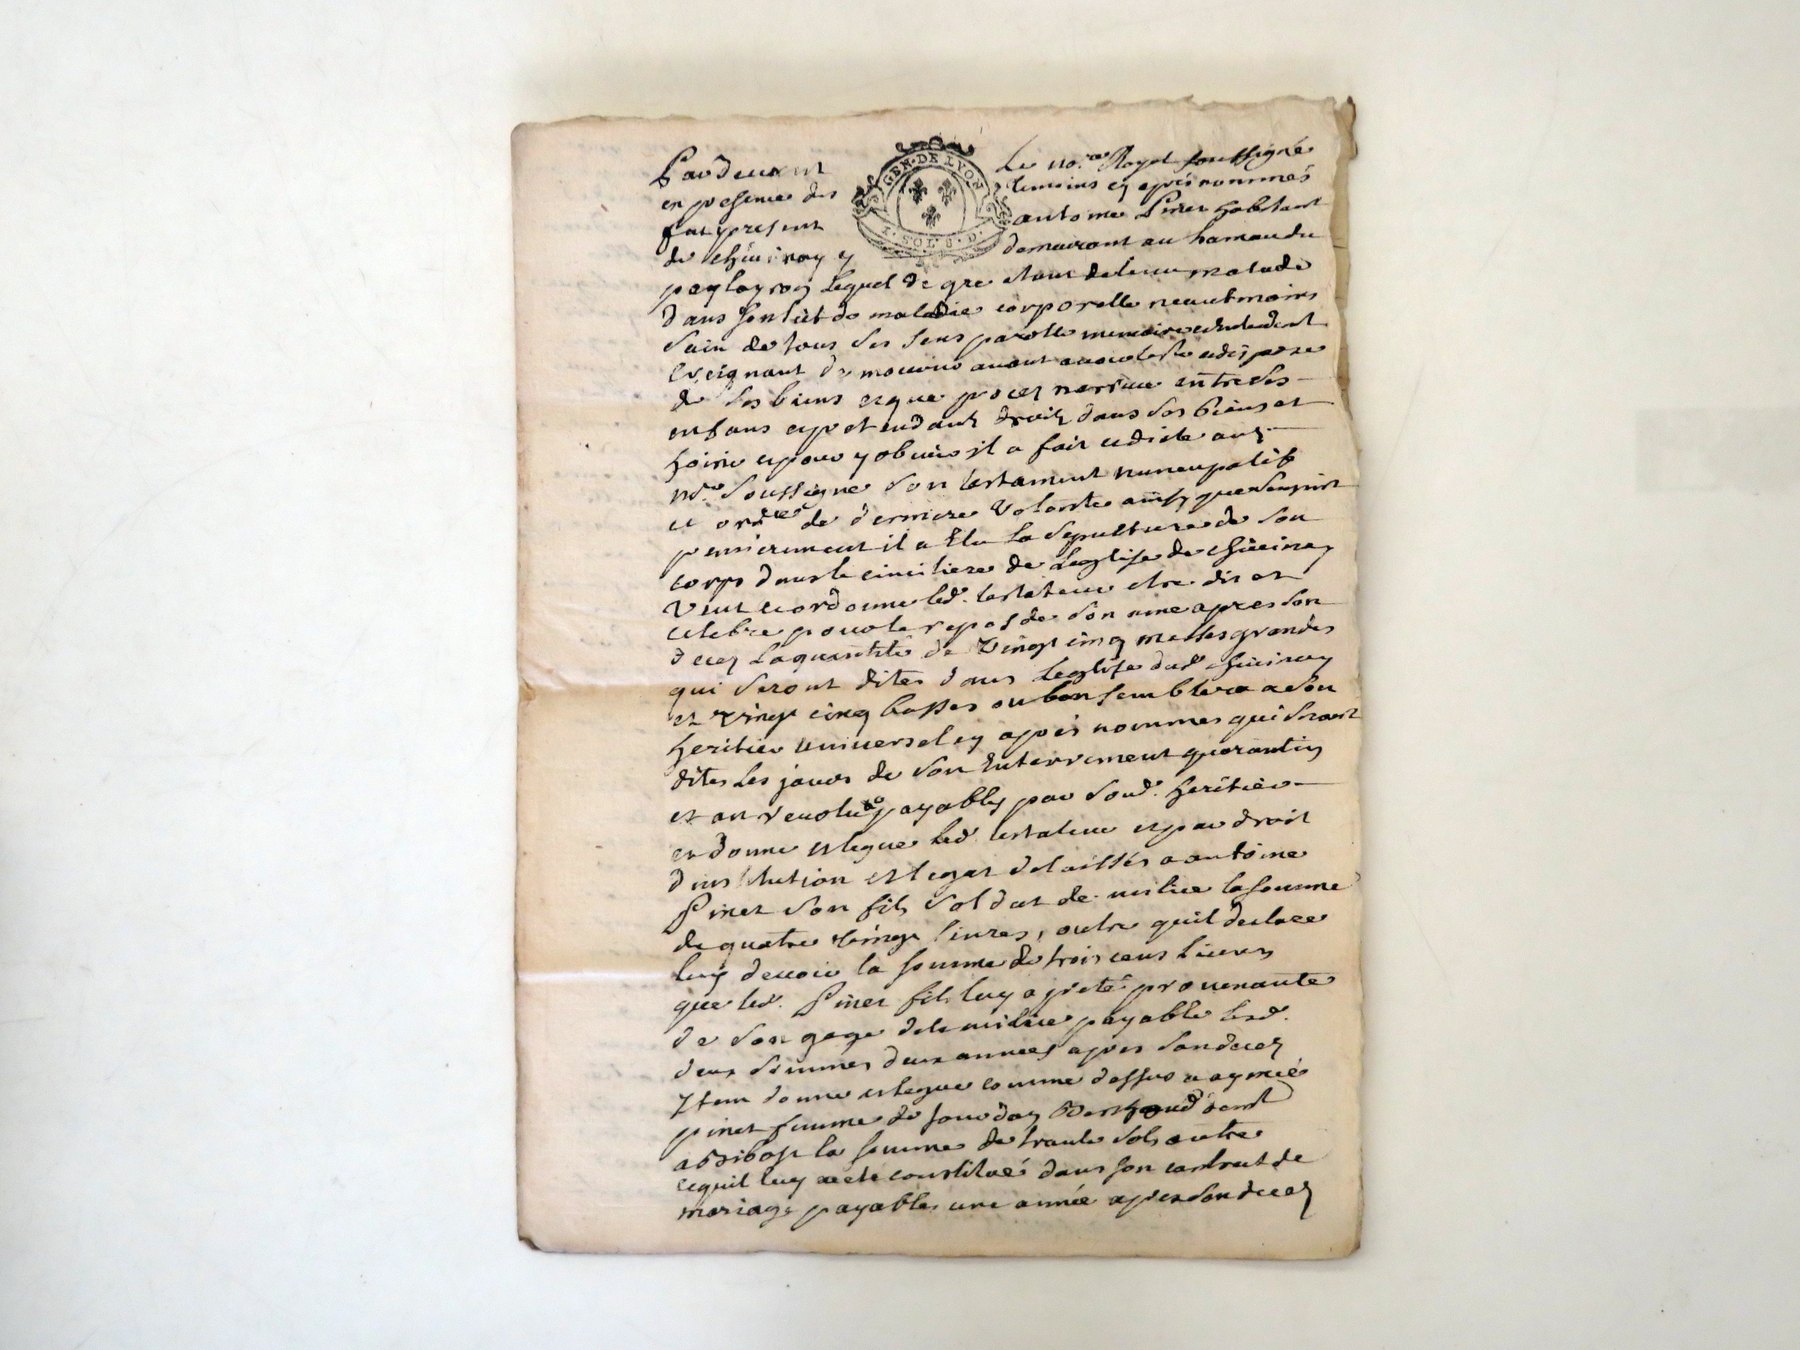 Pardevant Le no.re Royal soussigné
en presence des temoins cy apres nommés
fut present antoine Pinet habitant
de chuinay y demeurant au hameau du
GEN·DE LYON
1·SOL 8·D·
lequel de gre etant detenu malade
dans son lit de maladie corporelle neautmoins
sain de tous ses sens parolle memoire entendement
Creignant de mourir avant avoir teste e dispose
de ses biens et que proces narrive entre ses
enfans et pretendant droit dans ses biens et
hoirie et pour y obvier il a fait e dicte au
no.re soussigne son testament nuncupatif
et ord.re de derniere Volonte ainsy que sensuit
premierement il a Elu La Sepulture de son
corps dans le cimitiere de Leglise de chuinay
Veut e ordonne led. testateur etre dit et
celebre pour le repos de son ame apres son
deces La quantité de Vingt cinq messes grandes
qui seront dites dans Leglise dud. chuinay
et Vingt cinq basses ou bon semblera a son
heritier universel cy apres nommes qui seront
dites Les jours de son Enterrement quarantin
et an revolu payables par sond. heritier
et donne et legue led. testateur et par droit
dinstitution et legat delaissés a antoine
Pinet son fils soldat de milice la somme
de quatre Vingt livres, outre quil declare
luy devoir la somme de trois cens livres
que led. Pinet fils luy a preté provenante
de son gage de la milice payable lesd.
deux sommes deux annees apres son deces
Item donne et legue comme dessus a aymeé
pinet femme de
la somme de trante sols outre
ce quil luy a eté constitueé dans son contrat de
mariage payables une année apres son deces